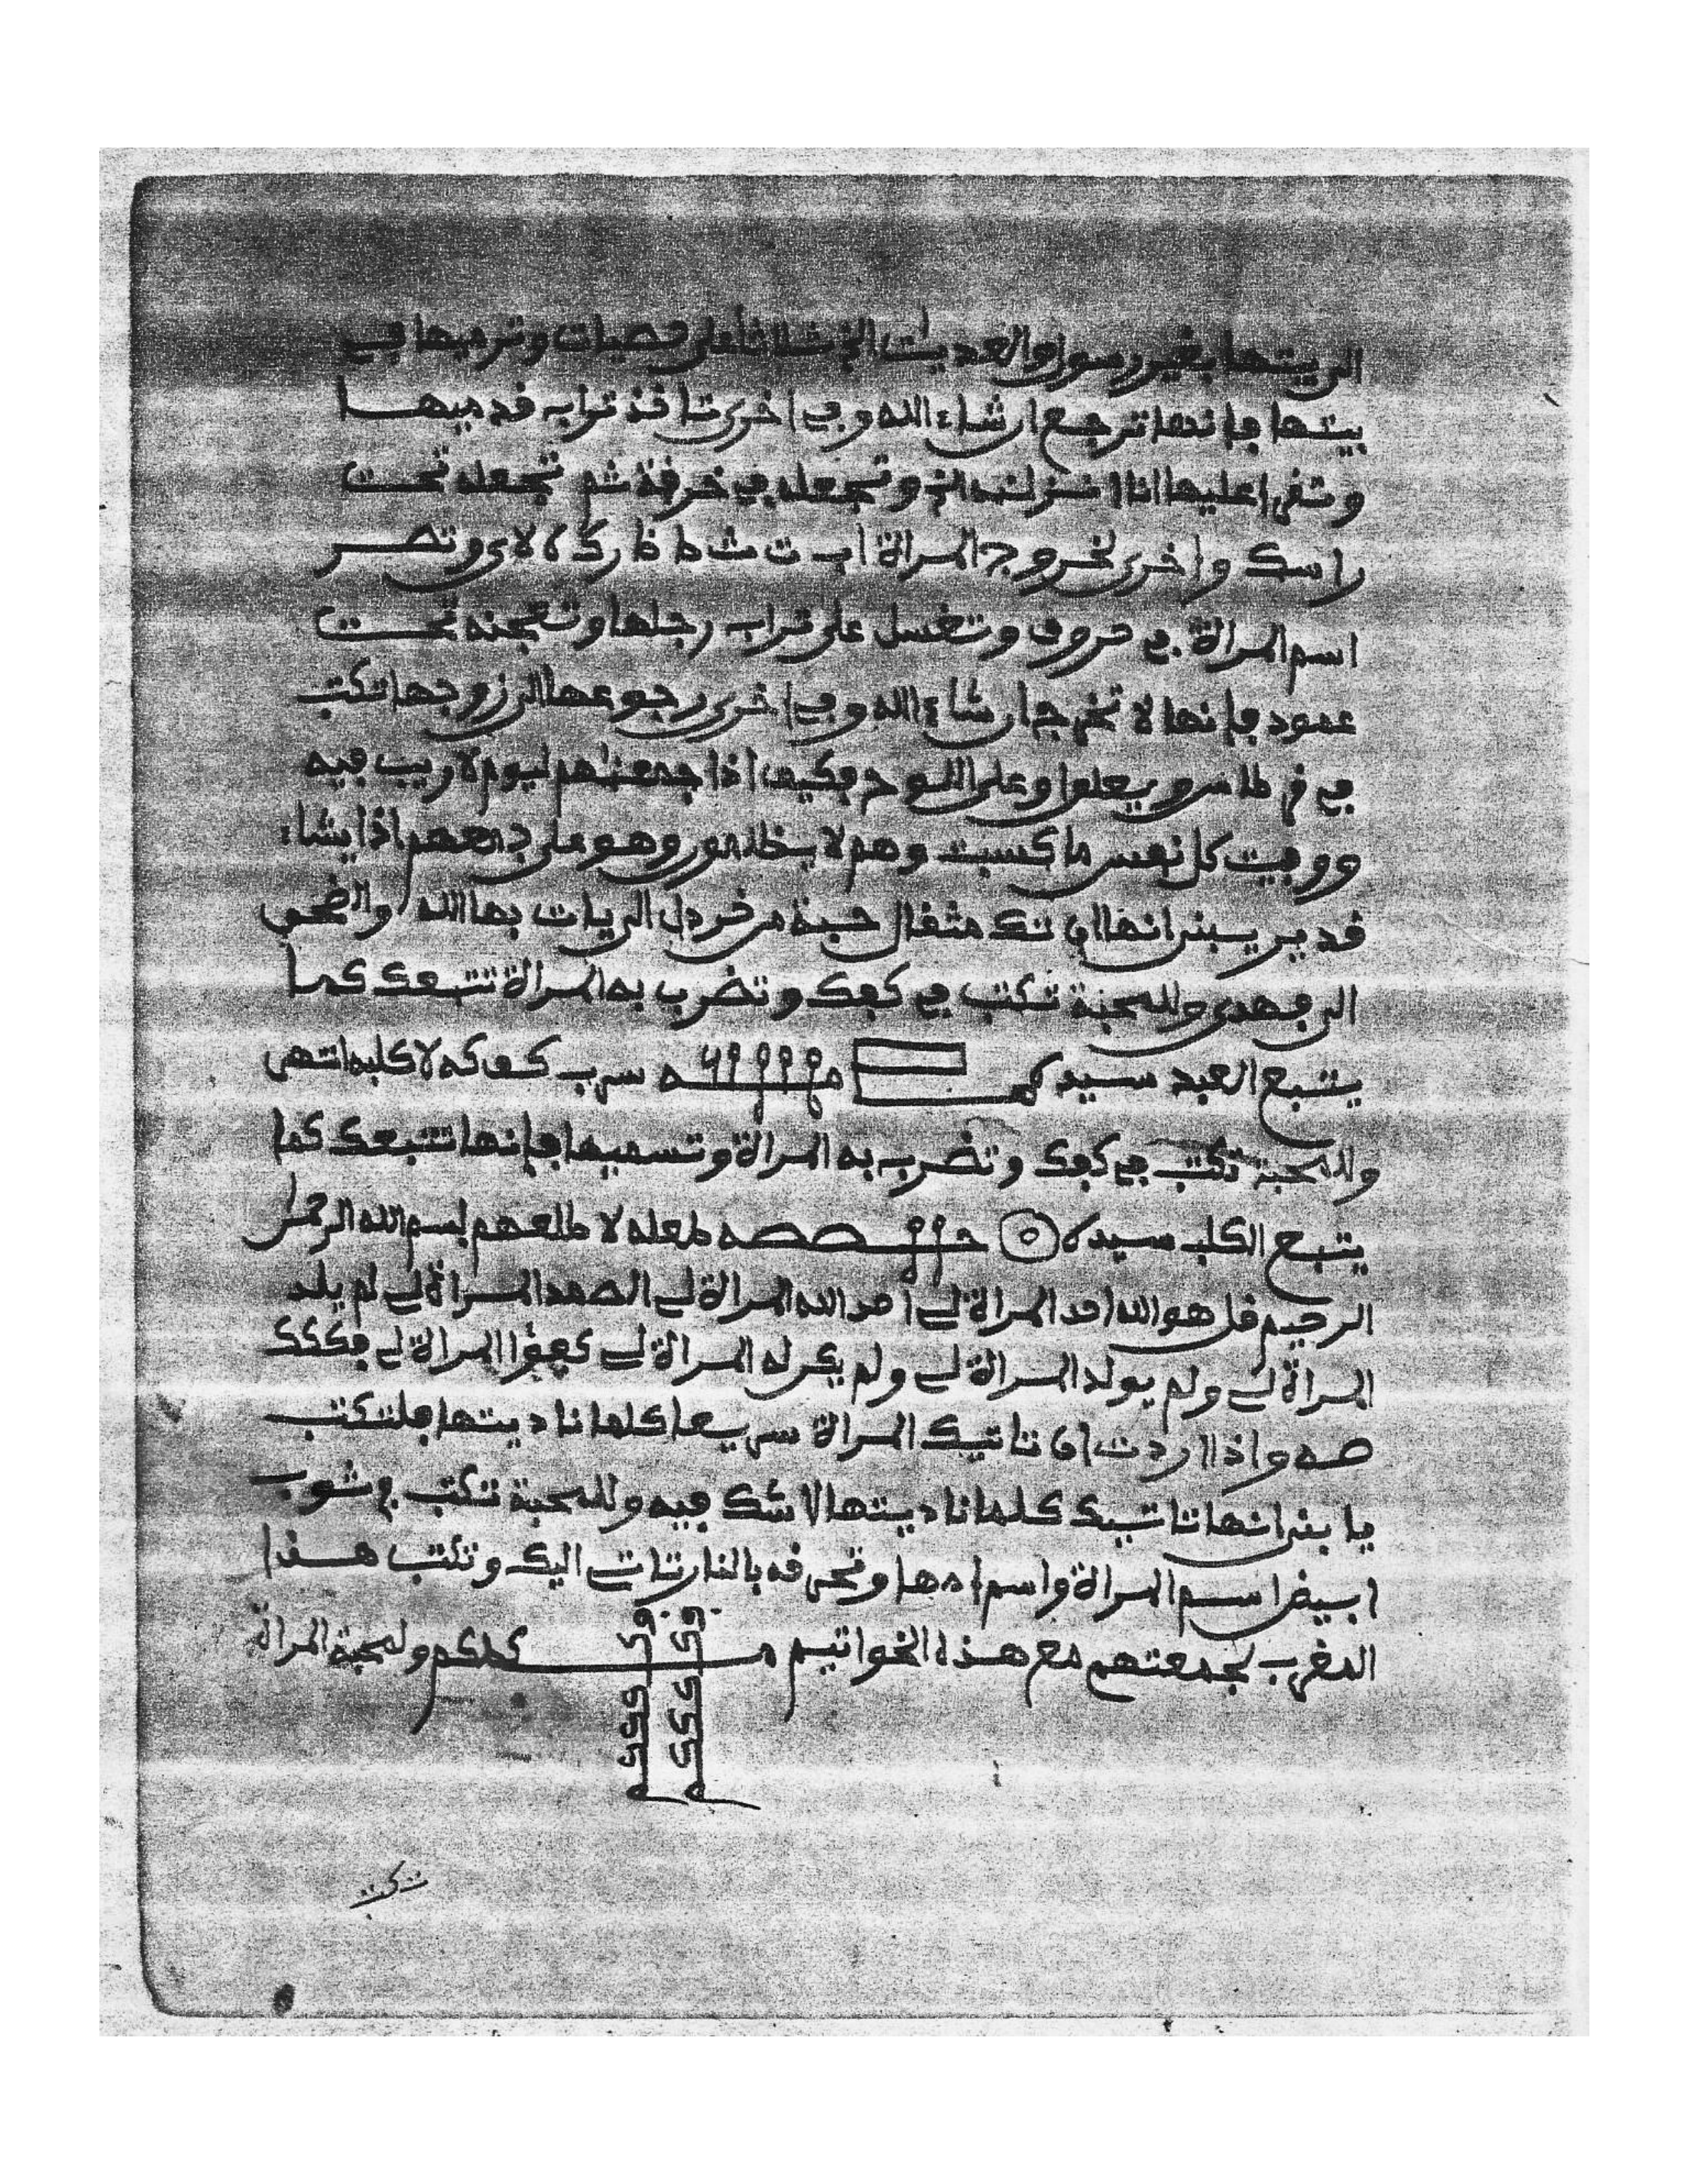 الى بيتها بغير رسول والعديت الخ ثلاثا على حصيات وترميها في
بيتها فإنها ترجع ان شاء الله وفي اخرى تاخذ تراب قدميها
وتقرا عليها انا انزلنه الخ وتجعله في خرقة ثم تجعله تحت
راسك واخرى لخروج المراة اب ت ث ط ظ ر ك ه لا ي وتصر
اسم المراة في حروف وتغسل على تراب رجلها وتعجنه تحت
عمود فإنها لا تخرج ان شاء الله وفي اخرى رجوعها الى زوجها تكتب
في فرطاس ويعلوا وعلى اللوح فكيف اذا جمعنهم ليوم لا ريب فيه
ووفيت كل نفس ما كسبت وهم لا يظلمون وهو على جمعهم اذا يشاء
قدير يبنى انها ان تك مثقال حبة من خردل الى يات بها الله والضحى
الى فهدى وللمحبة تكتب في كفك وتضرب به المراة تتبعك كما
يتبع العبد سيدك سرب كف كه لا كلبه انتهى
وللمحبة تكتب في كفك وتضرب به المراة وتسميها فإنها تتبعك كما
يتبع الكلب سيده لمعله لا طلعهم بسم الله الرحمن
الرحيم قل هو الله احد المراة لي احد الله المراة لي الصمد المراة لي لم يلد
المراة لي ولم يولد المراة لي ولم يكن له المراة لي كفؤا المراة لي فككك
صه واذا اردت ان تاتيك المراة سريعا كلما ناديتها فلتكتب
يا بنى انها تاتيك كلما ناديتها لا شك فيه وللمحبة تكتب في ثوب
ابيض اسم المراة واسم امها وتحرقه بالنار تاتي اليك وتكتب هذا
المغرب بجمعتهم مع هذه الخواتيم كلكم ولمحبة المراة
تكت